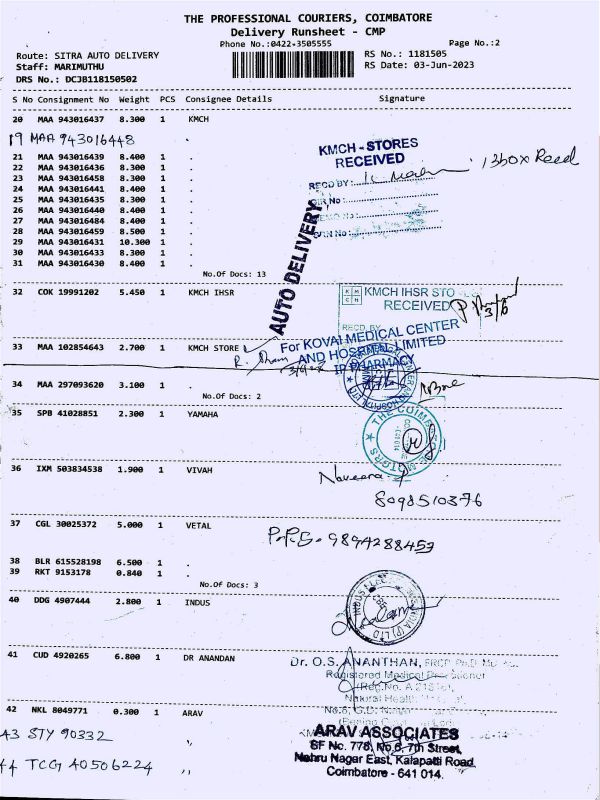 THE PROFESSIONAL COURIERS, COIMBATORE
Delivery Runsheet - CMP
Phone No.:0422-3505555
Page No.:2
Route: SITRA AUTO DELIVERY
RS No.: 1181505
Staff: MARIMUTHU
RS Date: 03-Jun-2023
DRS No.: DCJB118150502
S No Consignment No Weight PCS Consignee Details Signature
20 MAA 943016437 8.300 1 KMCH
19 MAA 943016448
KMCH - STORES
RECEIVED
21 MAA 943016439 8.400 1 .
22 MAA 943016436 8.300 1 .
23 MAA 943016458 8.300 1 .
RECD BY:
24 MAA 943016441 8.400 1 .
25 MAA 943016435 8.300 1 .
26 MAA 943016440 8.400 1 .
27 MAA 943016484 8.400 1 .
28 MAA 943016459 8.500 1 .
29 MAA 943016431 10.300 1 .
30 MAA 943016433 8.300 1 .
31 MAA 943016430 8.400 1 .
No.Of Docs: 13
AUTO DELIVERY
32 COK 19991202 5.450 1 KMCH IHSR
KMCH IHSR STO
RECEIVED
RECD BY
33 MAA 102854643 2.700 1 KMCH STORE
For KOVAI MEDICAL CENTER
AND HOSPITAL LIMITED
IP PHARMACY
34 MAA 297093620 3.100 1 .
No.Of Docs: 2
35 SPB 41028851 2.300 1 YAMAHA
36 IXM 503834538 1.900 1 VIVAH
8098510376
37 CGL 30025372 5.000 1 VETAL
9894288453
38 BLR 615528198 6.500 1 .
39 RKT 9153178 0.840 1 .
No.Of Docs: 3
40 DDG 4907444 2.800 1 INDUS
41 CUD 4920265 6.800 1 DR ANANDAN
Dr. O.S. ANANTHAN,
Registered Medical
42 NKL 8049771 0.300 1 ARAV
43 STY 90332
ARAV ASSOCIATES
SF No. 778, No.6, 7th Street,
Nehru Nagar East, Kalapatti Road
44 TCG 40506224 ,,
Coimbatore - 641 014.